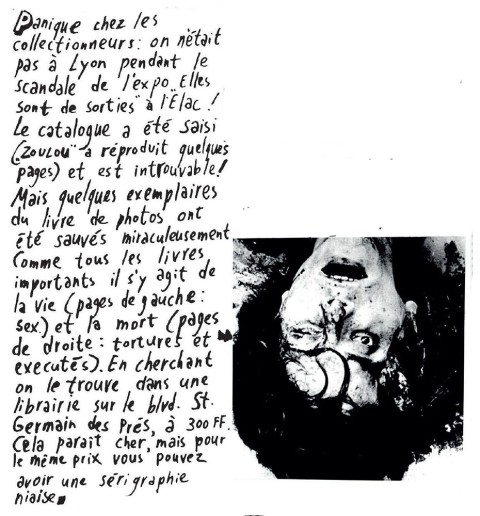 Panique chez les
collectionneurs : on n'était
pas à Lyon pendant le
scandale de l'expo "Elles
sont de sorties" à l'Élac !
Le catalogue a été saisi
("ZOULOU" a réproduit quelques
pages) et est introuvable !
Mais quelques exemplaires
du livre de photos ont
été sauvés miraculeusement
Comme tous les livres
importants il s'y agit de
la vie (pages de gauche :
sex) et la mort (pages
de droite : tortures et
executés). En cherchant
on le trouve dans une
librairie sur le blvd. St.
Germain des Prés, à 300 FF.
Cela parait cher, mais pour
le même prix vous pouvez
avoir une sérigraphie
niaise.